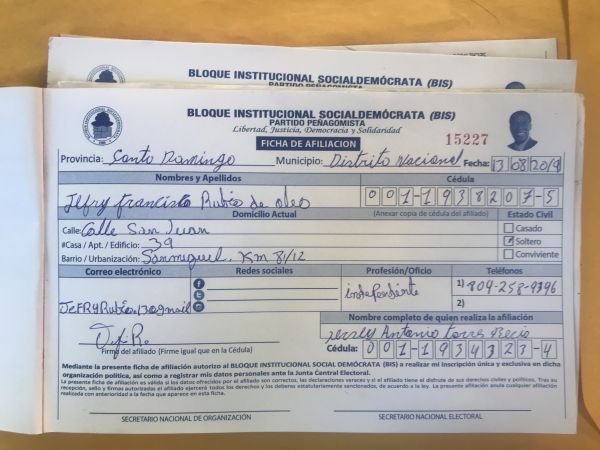 BLOQUE INSTITUCIONAL SOCIALDEMÓCRATA (BIS)
PARTIDO PEÑAGOMISTA
BLOQUE INSTITUCIONAL SOCIALDEMÓCRATA (BIS)
PARTIDO PEÑAGOMISTA
Libertad, Justicia, Democracia y Solidaridad
FICHA DE AFILIACION 15227
Provincia: Santo Domingo Municipio: Distrito Nacional Fecha: 13 08 20/9
Nombres y Apellidos Cédula
Jefry francisco Rubio de oleo 001-1938207-5
Domicilio Actual (Anexar copia de cédula del afiliado) Estado Civil
Calle: Calle San Juan Casado
#Casa / Apt. / Edificio: 39 Soltero
Barrio / Urbanización: Sanmiguel. Km 8 1/2 Conviviente
Correo electrónico Redes sociales Profesión/Oficio Teléfonos
independiente 1) 809-258-9396
2)
Nombre completo de quien realiza la afiliación
Antonio torres
Firma del afiliado (Firme igual que en la Cédula) Cédula: 001-1934323-4
Mediante la presente ficha de afiliación autorizo al BLOQUE INSTITUCIONAL SOCIAL DEMÓCRATA (BIS) a realizar mi inscripción única y exclusiva en dicha
organización política, así como a registrar mis datos personales ante la Junta Central Electoral.
La presente ficha de afiliación es válida si los datos ofrecidos por el afiliado son correctos, las declaraciones veraces y si el afiliado tiene el disfrute de sus derechos civiles y políticos. Tras su
recepción, sello y firmas autorizadas el afiliado ejercerá todos los derechos y los deberes estatutariamente sancionados, de acuerdo a la ley. La presente afiliación anula cualquier afiliación
realizada con anterioridad a la fecha que aparece en esta ficha.
SECRETARIO NACIONAL DE ORGANIZACIÓN SECRETARIO NACIONAL ELECTORAL